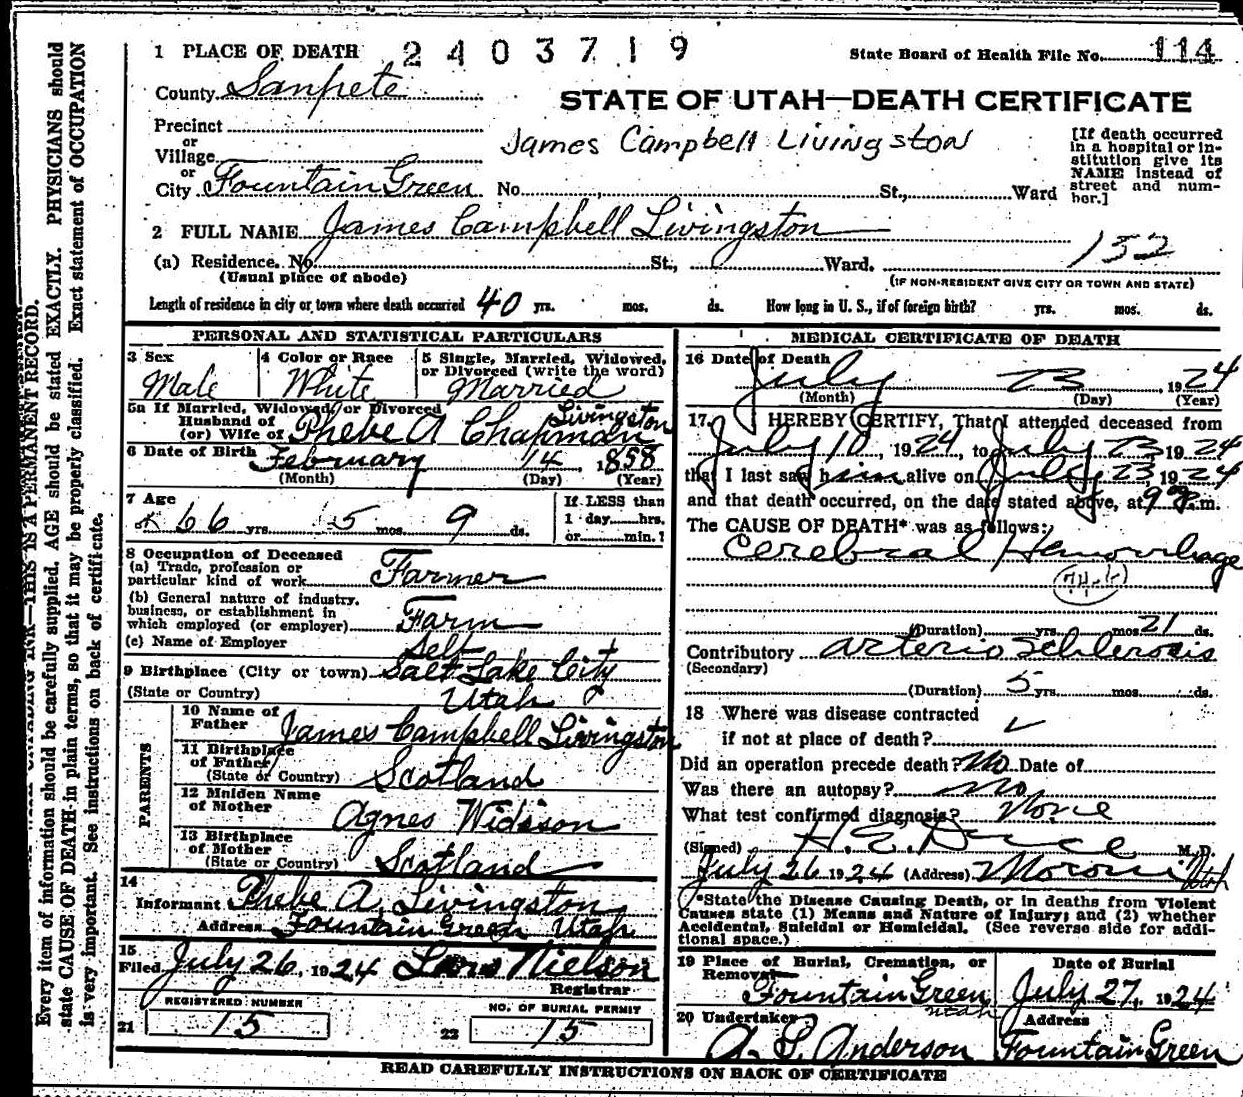 1 PLACE OF DEATH 2403719 State Board of Health File No. 114
County Sanpete
STATE OF UTAH—DEATH CERTIFICATE
Precinct
or
Village
or
City Fountain Green No. St., Ward
James Campbell Livingston
[If death occurred in a hospital or in-
stitution give its
NAME instead of
street and num-
ber.]
2 FULL NAME James Campbell Livingston
132
(a) Residence. No. St., Ward.
(Usual place of abode) (IF NON-RESIDENT GIVE CITY OR TOWN AND STATE)
Length of residence in city or town where death occurred 40 yrs. mos. ds. How long in U. S., if of foreign birth? yrs. mos. ds.
PERSONAL AND STATISTICAL PARTICULARS
3 Sex 4 Color or Race 5 Single, Married, Widowed,
or Divorced (write the word)
Male White Married
5a If Married, Widowed, or Divorced
Husband of
(or) Wife of Phebe A Chapman Livingston
6 Date of Birth February 14, 1858
(Month) (Day) (Year)
7 Age If LESS than
66 yrs. 5 mos. 9 ds. 1 day hrs.
or min.?
8 Occupation of Deceased
(a) Trade, profession or
particular kind of work Farmer
(b) General nature of industry,
business, or establishment in
which employed (or employer) Farm
(c) Name of Employer Self
9 Birthplace (City or town) Salt Lake City
(State or Country) Utah
PARENTS
10 Name of
Father James Campbell Livingston
11 Birthplace
of Father
(State or Country) Scotland
12 Maiden Name
of Mother Agnes Widsson
13 Birthplace
of Mother
(State or Country) Scotland
14
Informant Phebe A. Livingston
Address Fountain Green Utah
15
Filed July 26, 1924 Lars Nielson
Registrar
REGISTERED NUMBER NO. OF BURIAL PERMIT
21 15 22 15
MEDICAL CERTIFICATE OF DEATH
16 Date of Death
July 23, 1924
(Month) (Day) (Year)
17. I HEREBY CERTIFY, That I attended deceased from
July 10, 1924, to July 23 1924
that I last saw him alive on July 23, 1924
and that death occurred, on the date stated above, at 9 m.
The CAUSE OF DEATH* was as follows:
Cerebral Hemorrhage
(Duration) yrs. mos. 21 ds.
Contributory Arterio Schlerosis
(Secondary)
(Duration) 5 yrs. mos. ds.
18 Where was disease contracted
if not at place of death?
Did an operation precede death? No Date of
Was there an autopsy? No
What test confirmed diagnosis? None
(Signed) H. E. M.D.
July 26 1924 (Address) Moroni Utah
*State the Disease Causing Death, or in deaths from Violent
Causes state (1) Means and Nature of Injury; and (2) whether
Accidental, Suicidal or Homicidal. (See reverse side for addi-
tional space.)
19 Place of Burial, Cremation, or
Removal Date of Burial
Fountain Green Utah July 27, 1924
20 Undertaker Address
A. L. Anderson Fountain Green
READ CAREFULLY INSTRUCTIONS ON BACK OF CERTIFICATE
THIS IS A PERMANENT RECORD.
Every item of information should be carefully supplied. AGE should be stated EXACTLY. PHYSICIANS should
state CAUSE OF DEATH in plain terms, so that it may be properly classified. Exact statement of OCCUPATION
is very important. See instructions on back of certificate.